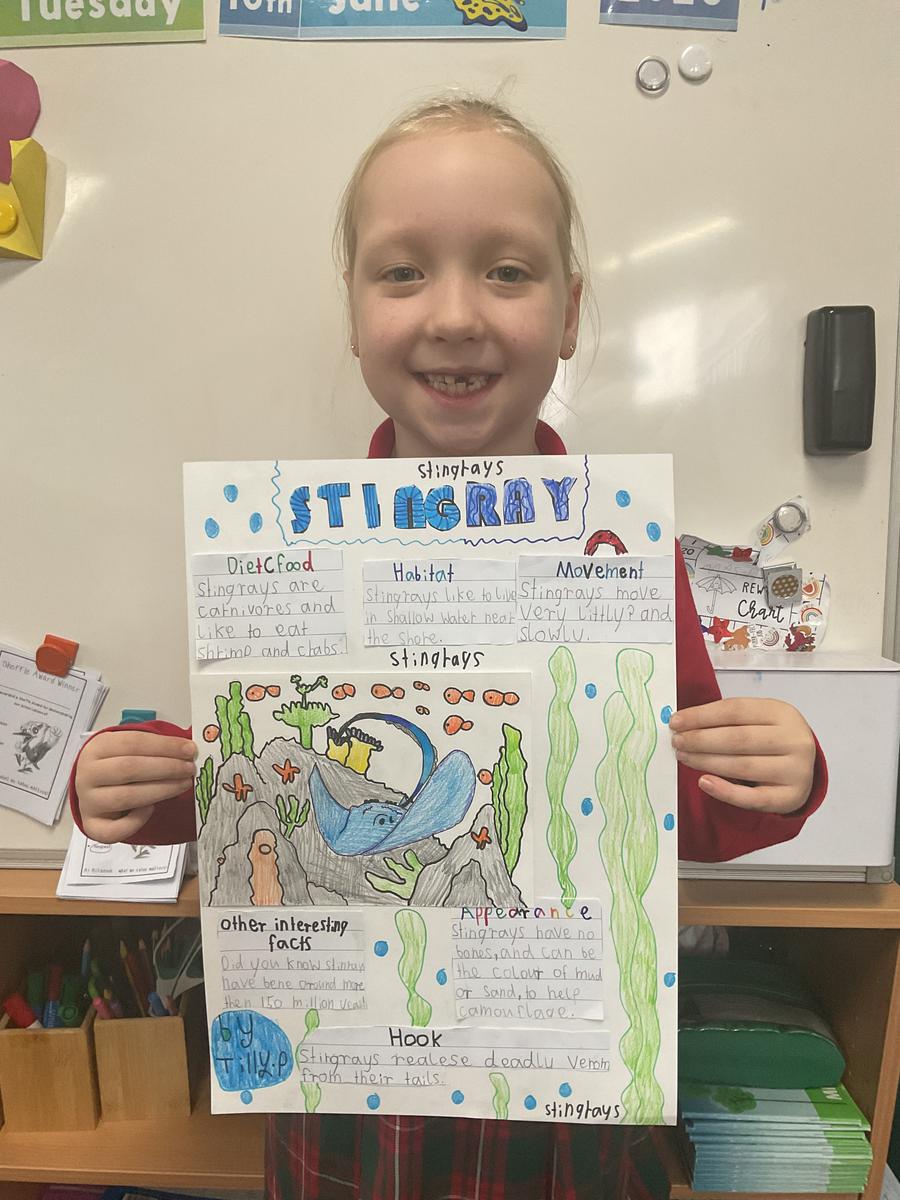 Tuesday
10th
June
2025
stingrays
STINGRAY
Diet(food
Stingrays are
carnivores and
like to eat
shrimp and crabs.
Habitat
Stingrays like to live
in shallow water near
the shore.
Movement
Stingrays move
very littly? and
slowly.
stingrays
other interesting
facts
Did you know
have bene around more
then 150 million
Appearance
Stingrays have no
bones, and can be
the colour of mud
or sand, to help
camouflage.
by
Tilly.P
Hook
Stingrays realese deadly venom
from their tails.
stingrays
Award Winner
REW
Chart